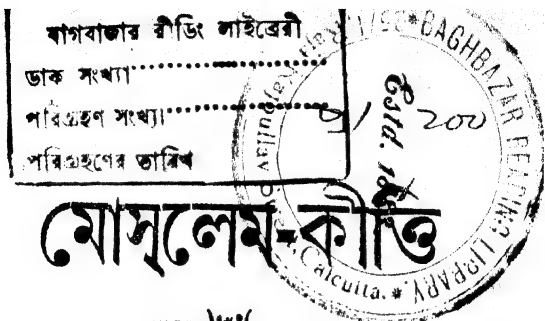 বাগবাজার রীডিং লাইব্রেরী
ডাক সংখ্যা
পরিগ্রহণ সংখ্যা
পরিগ্রহণের তারিখ
BAGHBAZAR READING LIBRARY
Calcutta.
Estd. 
200
মোস্‌লেম-কীর্ত্তি